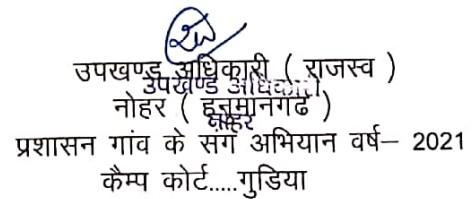 उपखण्ड अधिकारी ( राजस्व )
उपखण्ड अधिकारी
नोहर ( हनुमानगढ )
नोहर
प्रशासन गांव के संग अभियान वर्ष– 2021
कैम्प कोर्ट.....गुडिया